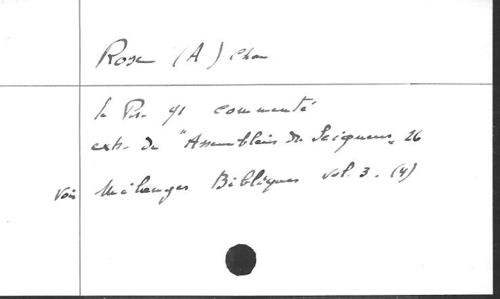 Rose (A) Chan
le Ps. 41 commenté
extr. de "Assemblées du Seigneur" 26
voir Mélanges Bibliques vol. 3. (4)